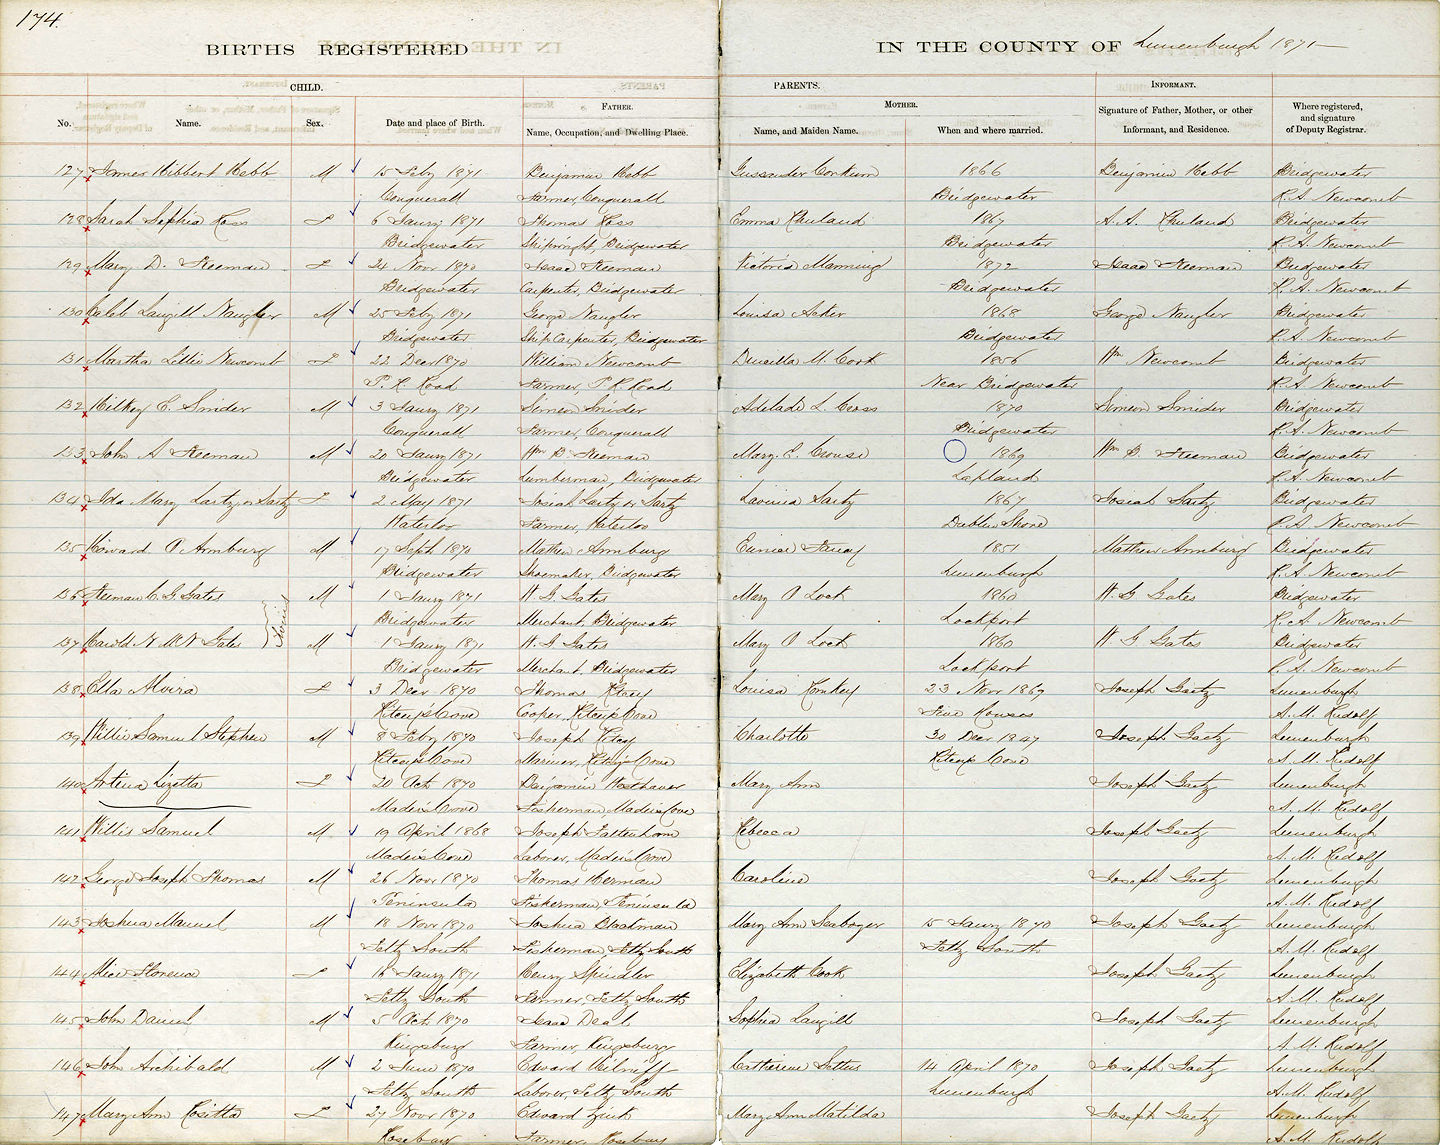 174.
BIRTHS REGISTERED IN THE COUNTY OF Lunenburgh 1871
CHILD. PARENTS. INFORMANT.
FATHER. MOTHER.
No. Name. Sex. Date and place of Birth. Name, Occupation, and Dwelling Place. Name, and Maiden Name. When and where married. Signature of Father, Mother, or other Informant, and Residence. Where registered, and signature of Deputy Registrar.
127 Hibbert Hebb M 15 Feby 1871 Benjamin Hebb 1866 Benjamin Hebb Bridgewater
Conquerall Farmer, Conquerall Bridgewater R. A. Newcomb
128 Sarah Sophia Ross F 6 Jaury 1871 Thomas Ross Emma 1867 A. A. Bridgewater
Bridgewater Shipwright, Bridgewater Bridgewater R. A. Newcomb
129 Mary D. Freeman F 24 Novr 1870 Isaac Freeman Victoria Manning 1872 Isaac Freeman Bridgewater
Bridgewater Carpenter, Bridgewater Bridgewater R. A. Newcomb
130 Caleb Langill Naugler M 25 Feby 1871 George Naugler Louisa Acker 1868 George Naugler Bridgewater
Bridgewater Ship Carpenter, Bridgewater Bridgewater R. A. Newcomb
131 Martha Lillie Newcomb F 22 Decr 1870 William Newcomb Drucilla M. Cook 1856 Wm Newcomb Bridgewater
P. R. Road Farmer, P. R. Road Near Bridgewater R. A. Newcomb
132 Wilkey E. Snider M 3 Jaury 1871 Simeon Snider Adelade L. Cross 1870 Simeon Snider Bridgewater
Conquerall Farmer, Conquerall Bridgewater R. A. Newcomb
133 John A Freeman M 20 Jaury 1871 Wm B Freeman Mary E. Crouse 1869 Wm B. Freeman Bridgewater
Bridgewater Lumberman, Bridgewater Lapland R. A. Newcomb
134 Ida Mary Lartz or Sartz F 2 May 1871 Josiah Lartz or Sartz Lavinia Sarty 1867 Josiah Sartz Bridgewater
Waterloo Farmer, Waterloo Dublin Shore R. A. Newcomb
135 Howard O Armburg M 17 Septr 1870 Mathew Armburg Eunice 1851 Mathew Armburg Bridgewater
Bridgewater Shoemaker, Bridgewater Lunenburgh R. A. Newcomb
136 Freeman C. G. Gates M 1 Jaury 1871 W. G. Gates Mary O Lock 1860 W. G Gates Bridgewater
Twins
Bridgewater Merchant, Bridgewater Lockport R. A. Newcomb
137 Harold N McN Gates M 1 Jaury 1871 W. G Gates Mary O Lock 1860 W G Gates Bridgewater
Bridgewater Merchant, Bridgewater Lockport R. A. Newcomb
138 Ella Alvira F 3 Decr 1870 Thomas Louisa 23 Novr 1869 Joseph Gaetz Lunenburgh
Ritcey's Cove Cooper, Ritcey's Cove Five Houses A. M. Rudolf
139 Willis Samuel Stephen M 8 Feby 1870 Joseph Ritcey Charlotte 30 Decr 1847 Joseph Gaetz Lunenburgh
Ritcey's Cove Mariner, Ritcey's Cove Ritcey's Cove A. M. Rudolf
140 Artena Lizetta F 20 Oct 1870 Benjamin Westhaver Mary Ann Joseph Gaetz Lunenburgh
Mader's Cove Fisherman, Mader's Cove A. M. Rudolf
141 Willis Samuel M 19 April 1868 Joseph Rebecca Joseph Gaetz Lunenburgh
Mader's Cove Laborer, Mader's Cove A. M. Rudolf
142 George Joseph Thomas M 26 Novr 1870 Thomas Herman Caroline Joseph Gaetz Lunenburgh
Peninsula Fisherman, Peninsula A. M. Rudolf
143 Joshua Manuel M 18 Novr 1870 Joshua Mary Ann Seaboyer 15 Jaury 1870 Joseph Gaetz Lunenburgh
Feltz South Fisherman, Feltz South Feltz South A. M. Rudolf
144 Alice Florence F 18 Jaury 1871 Henry Spindler Elizabeth Cook Joseph Gaetz Lunenburgh
Feltz South Farmer, Feltz South A. M. Rudolf
145 John Daniel M 5 Oct 1870 Isaac Deal Sophia Langill Joseph Gaetz Lunenburgh
Kingsburg Farmer, Kingsburg A. M. Rudolf
146 John Archibald M 2 June 1870 Edward Catharine 14 April 1870 Joseph Gaetz Lunenburgh
Feltz South Laborer, Feltz South Lunenburgh A. M. Rudolf
147 Mary Ann Rositta F 27 Novr 1870 Edward Zink Mary Ann Matilda Joseph Gaetz Lunenburgh
Rosebury Farmer, Rosebury A. M. Rudolf